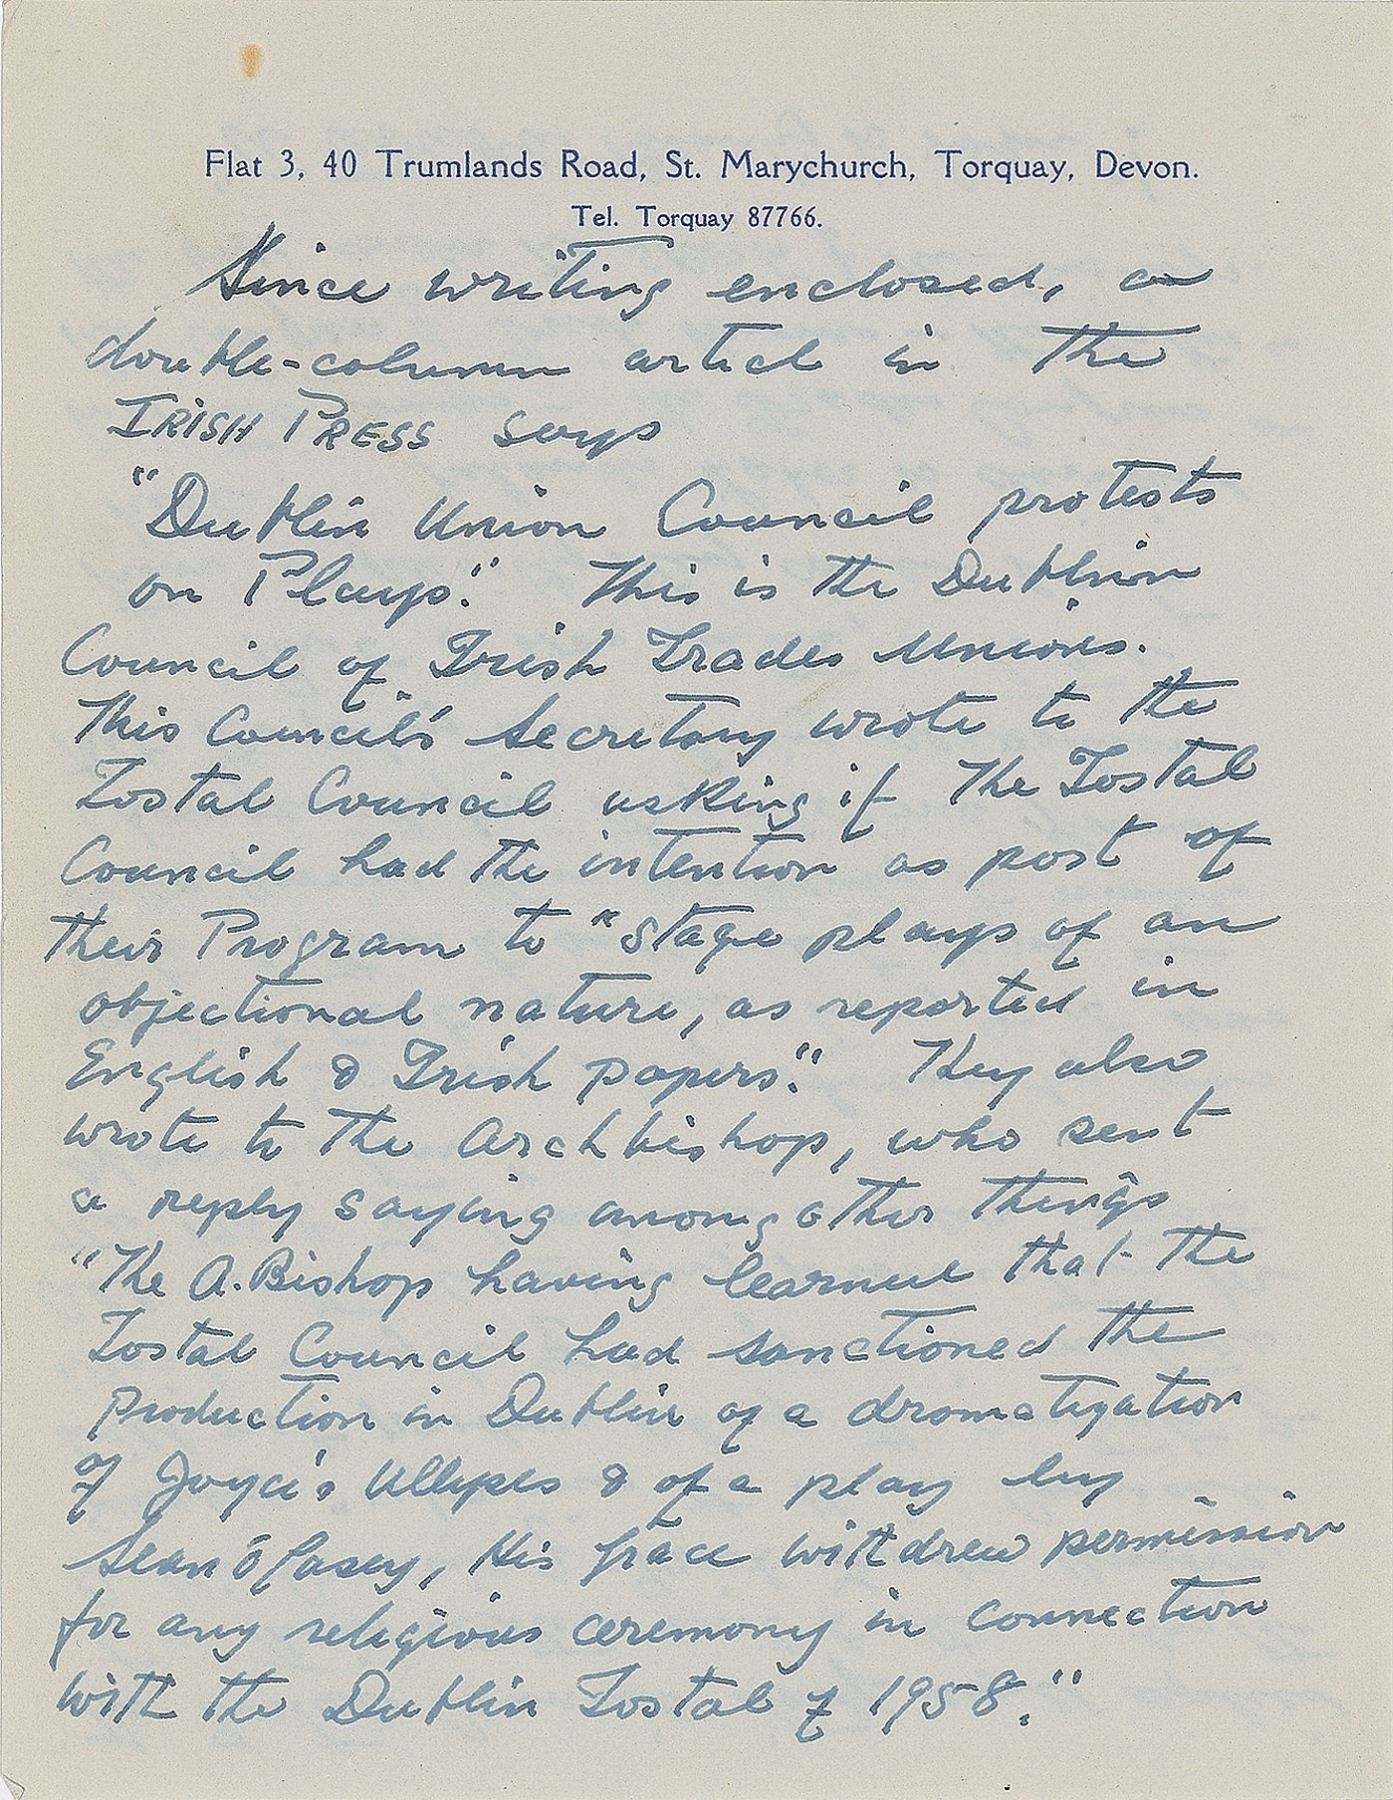 Flat 3, 40 Trumlands Road, St. Marychurch, Torquay, Devon.
Tel. Torquay 87766.
Since writing enclosed, a
double-column articl in the
IRISH PRESS says
"Dublin Union Council protests
on Plays." This is the Dublin
Council of Irish Trades Unions.
This Council's Secretary wrote to the
Tostal Council asking if The Tostal
Council had the intention as post of
their Program to "stage plays of an
objectional nature, as reported in
English & Irish papers." They also
wrote to the Archbishop, who sent
a reply saying among other things
"The A.Bishop having learned that the
Tostal Council had sanctioned the
production in Dublin of a dramatization
of Joyce's Ullyses & of a play by
Sean O'Casey, His Grace withdrew permission
for any religious ceremony in connection
with the Dublin Tostal of 1958."